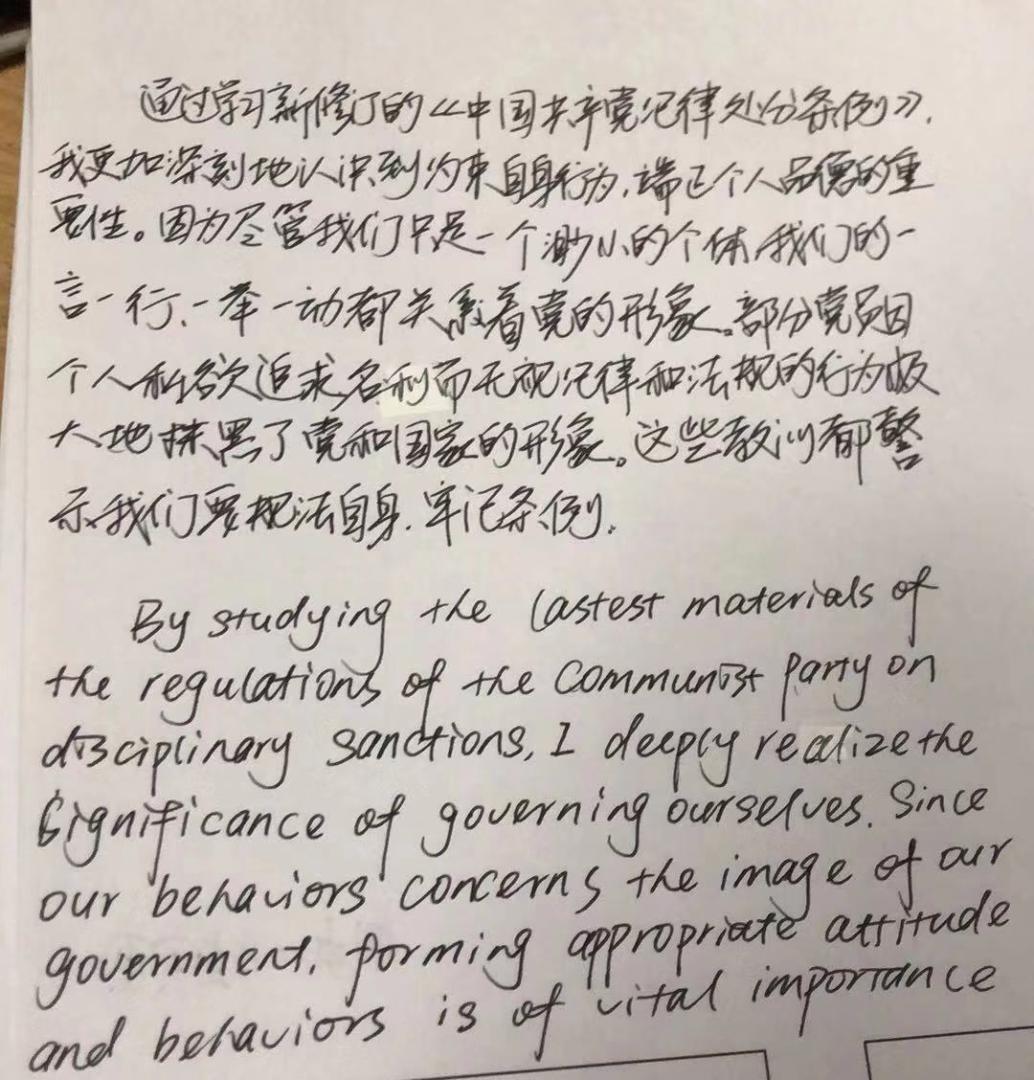 通过学习新修订的《中国共产党纪律处分条例》,
我更加深刻地认识到约束自身行为,端正个人品德的重
要性。因为尽管我们只是一个渺小的个体,我们的一
言一行、一举一动都关系着党的形象。部分党员因
个人私欲追求名利而无视纪律和法规的行为极
大地抹黑了党和国家的形象。这些教训都警
示我们要规法自身,牢记条例.
By studying the lastest materials of
the regulations of the communist party on
disciplinary sanctions, I deeply realize the
significance of governing ourselves. Since
our behaviors concerns the image of our
government, forming appropriate attitude
and behaviors is of vital importance